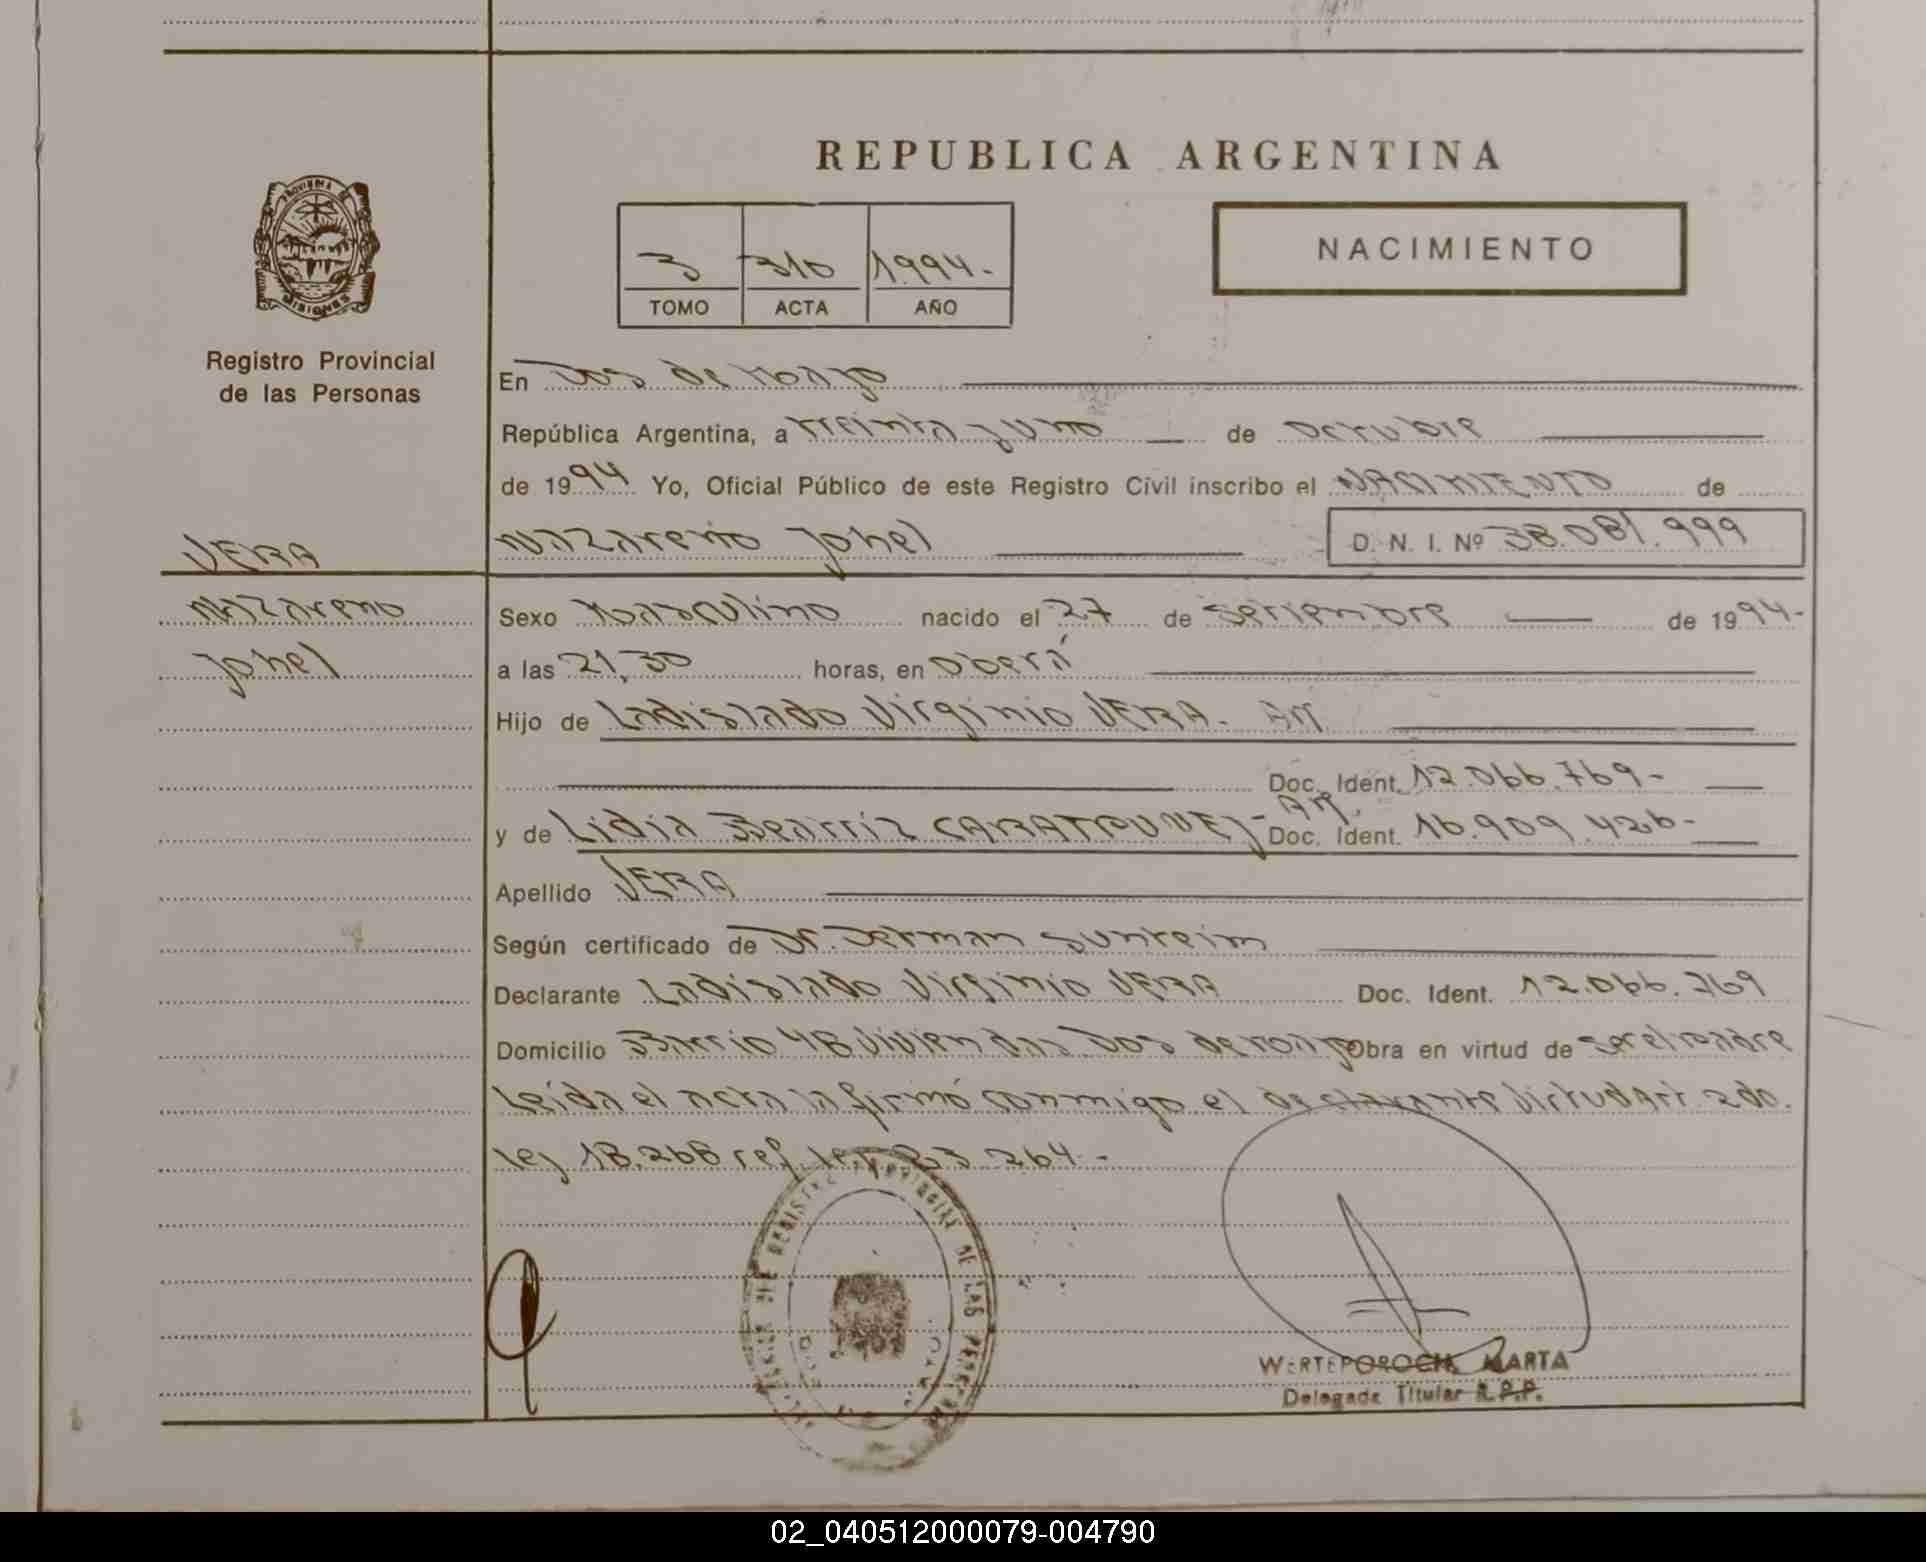 REPUBLICA ARGENTINA
PROVINCIA DE
MISIONES
Registro Provincial
de las Personas
NACIMIENTO
3 310 1994.-
TOMO ACTA AÑO
En Dos de Mayo
República Argentina, a treinta y uno de octubre
de 1994 Yo, Oficial Público de este Registro Civil inscribo el NACIMIENTO de
VERA
Nazareno Johel D. N. I. Nº 38.081.999
Nazareno
Johel
Sexo Masculino nacido el 27 de Setiembre de 1994-
a las 21,30 horas, en Oberá
Hijo de Ladislado Virginio VERA.- Arg.
Doc. Ident. 12.066.769-
y de Lidia Beatriz - Arg. Doc. Ident. 16.909.426-
Apellido VERA
Según certificado de Dr. German Sunkeim
Declarante Ladislado Virginio VERA Doc. Ident. 12.066.769
Domicilio Barrio 48 Viviendas Dos de Mayo Obra en virtud de ser el padre
Leída el acta la firmó conmigo el declarante Virtud Art. 2do.
ley 18.268 ref. ley 23.264.-
REGISTRO PROVINCIAL DE LAS PERSONAS
WERTEPOROCH, MARTA
Delegada Titular R.P.P.
02_040512000079-004790